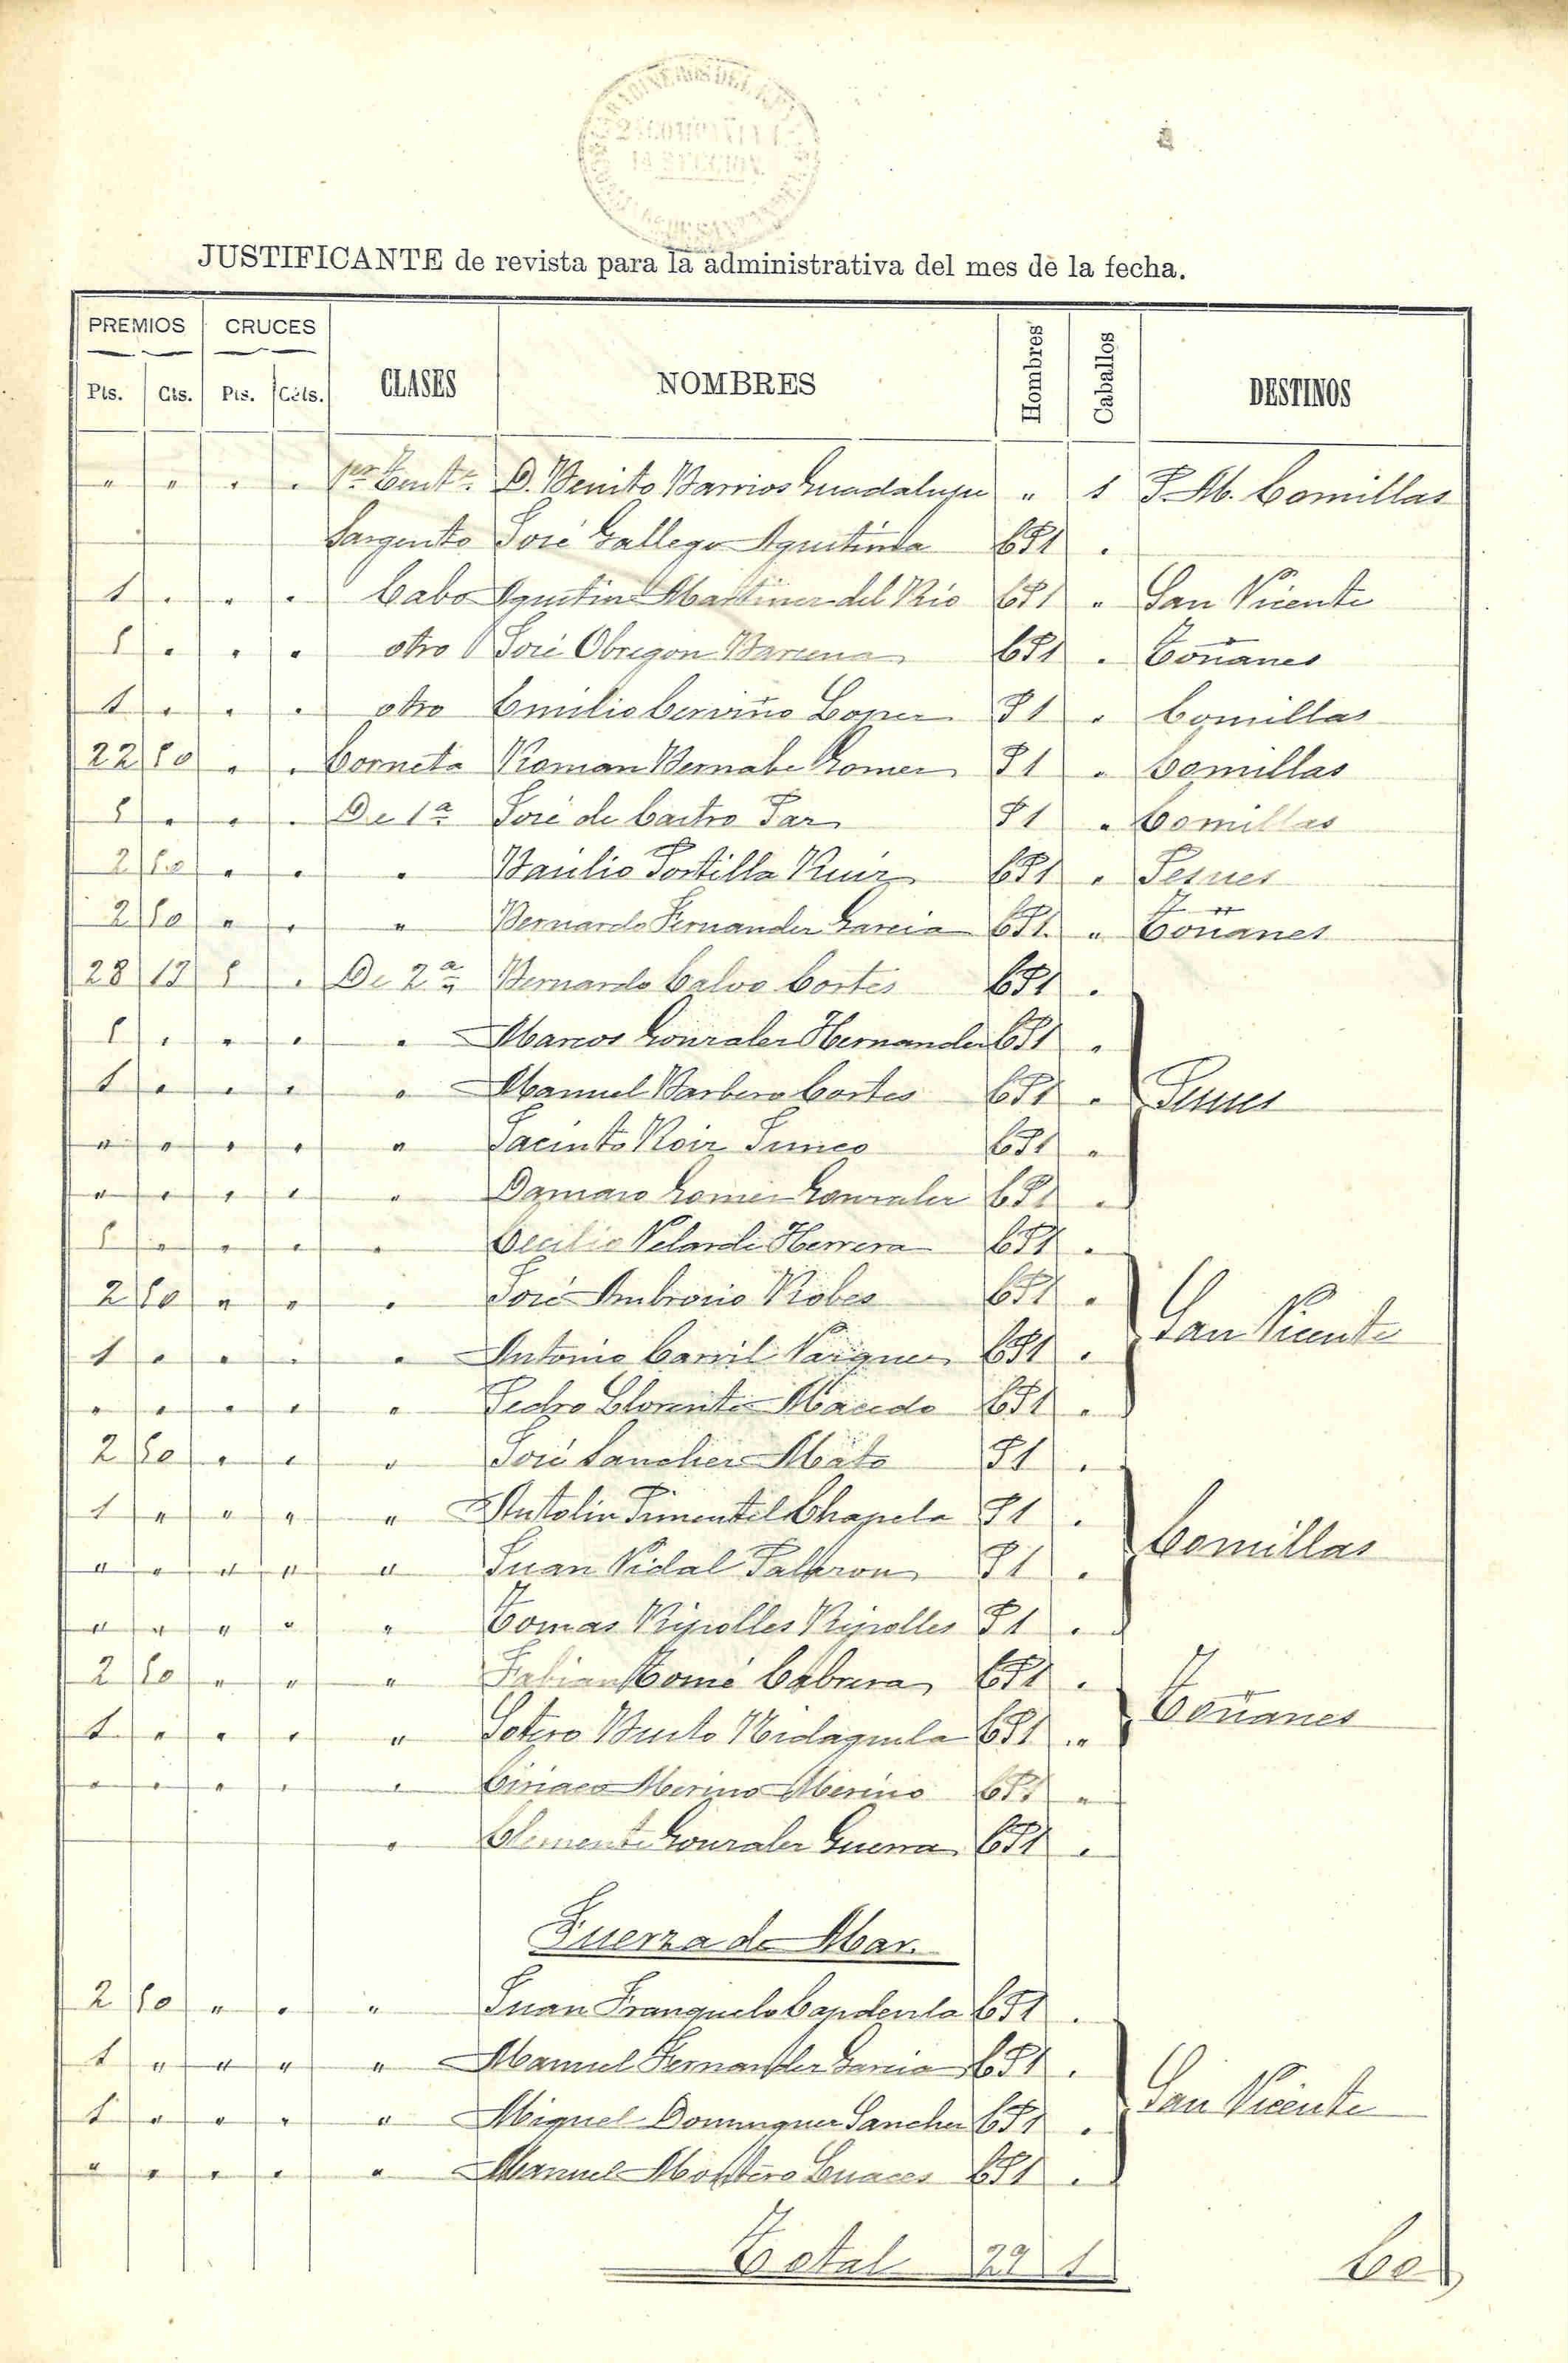 CARABINEROS DEL REINO
2ª COMPAÑIA
1ª SECCION.
JUSTIFICANTE de revista para la administrativa del mes de la fecha.
PREMIOS CRUCES CLASES NOMBRES Hombres Caballos DESTINOS
Pts. Cts. Pts. Céts.
" " " " 1er Tente. D. Benito Barrios Guadalupe " 1 P.M. Comillas
Sargento José Gallego Agustina CP1 "
1 " " " Cabo Agustin Martinez del Rio CP1 " San Vicente
5 " " " otro José Obregon Barcena CP1 " Toñanes
1 " " " otro Emilio Cerviño Lopez P1 " Comillas
22 50 " " Corneta Roman Bernabe Gomez P1 " Comillas
5 " " " De 1ª José de Castro Paz P1 " Comillas
2 50 " " " Basilio Portilla Ruiz CP1 " Pesues
2 50 " " " Bernardo Fernandez Garcia CP1. " Toñanes
28 13 5 " De 2ª Bernardo Calvo Cortes CP1 "
5 " " " " Marcos Gonzalez Hernandez CP1 "
1 " " " " Manuel Barbero Cortes CP1 " Pesues
" " " " " Jacinto Roiz Junco CP1 "
" " " " " Damaso Gomez Gonzalez CP1 "
5 " " " " Cecilio Velarde Herrera CP1 "
2 50 " " " José Ambrosio Robes CP1 "
San Vicente
1 " " " " Antonio Carril Vazquez CP1 "
" " " " " Pedro Llorente Macedo CP1 "
2 50 " " " José Sanchez Mato P1 "
1 " " " " Antolin Pimentel Chapela P1 "
Comillas
" " " " " Juan Vidal P1 "
" " " " " Tomas Ripolles Ripolles P1 "
2 50 " " " Fabian Tomé Cabrera CP1 "
Toñanes
1 " " " " Sotero CP1 "
" " " " " Ciriaco Merino Merino CP1 "
" Clemente Gonzalez Guerra CP1 "
Fuerza de Mar.
2 50 " " " Juan Franquelo Capdevila CP1 "
1 " " " " Manuel Fernandez Garcia CP1 "
San Vicente
1 " " " " Miguel Dominguez Sanchez CP1 "
" " " " " Manuel Montero Luaces CP1 "
Total 29 1
Co